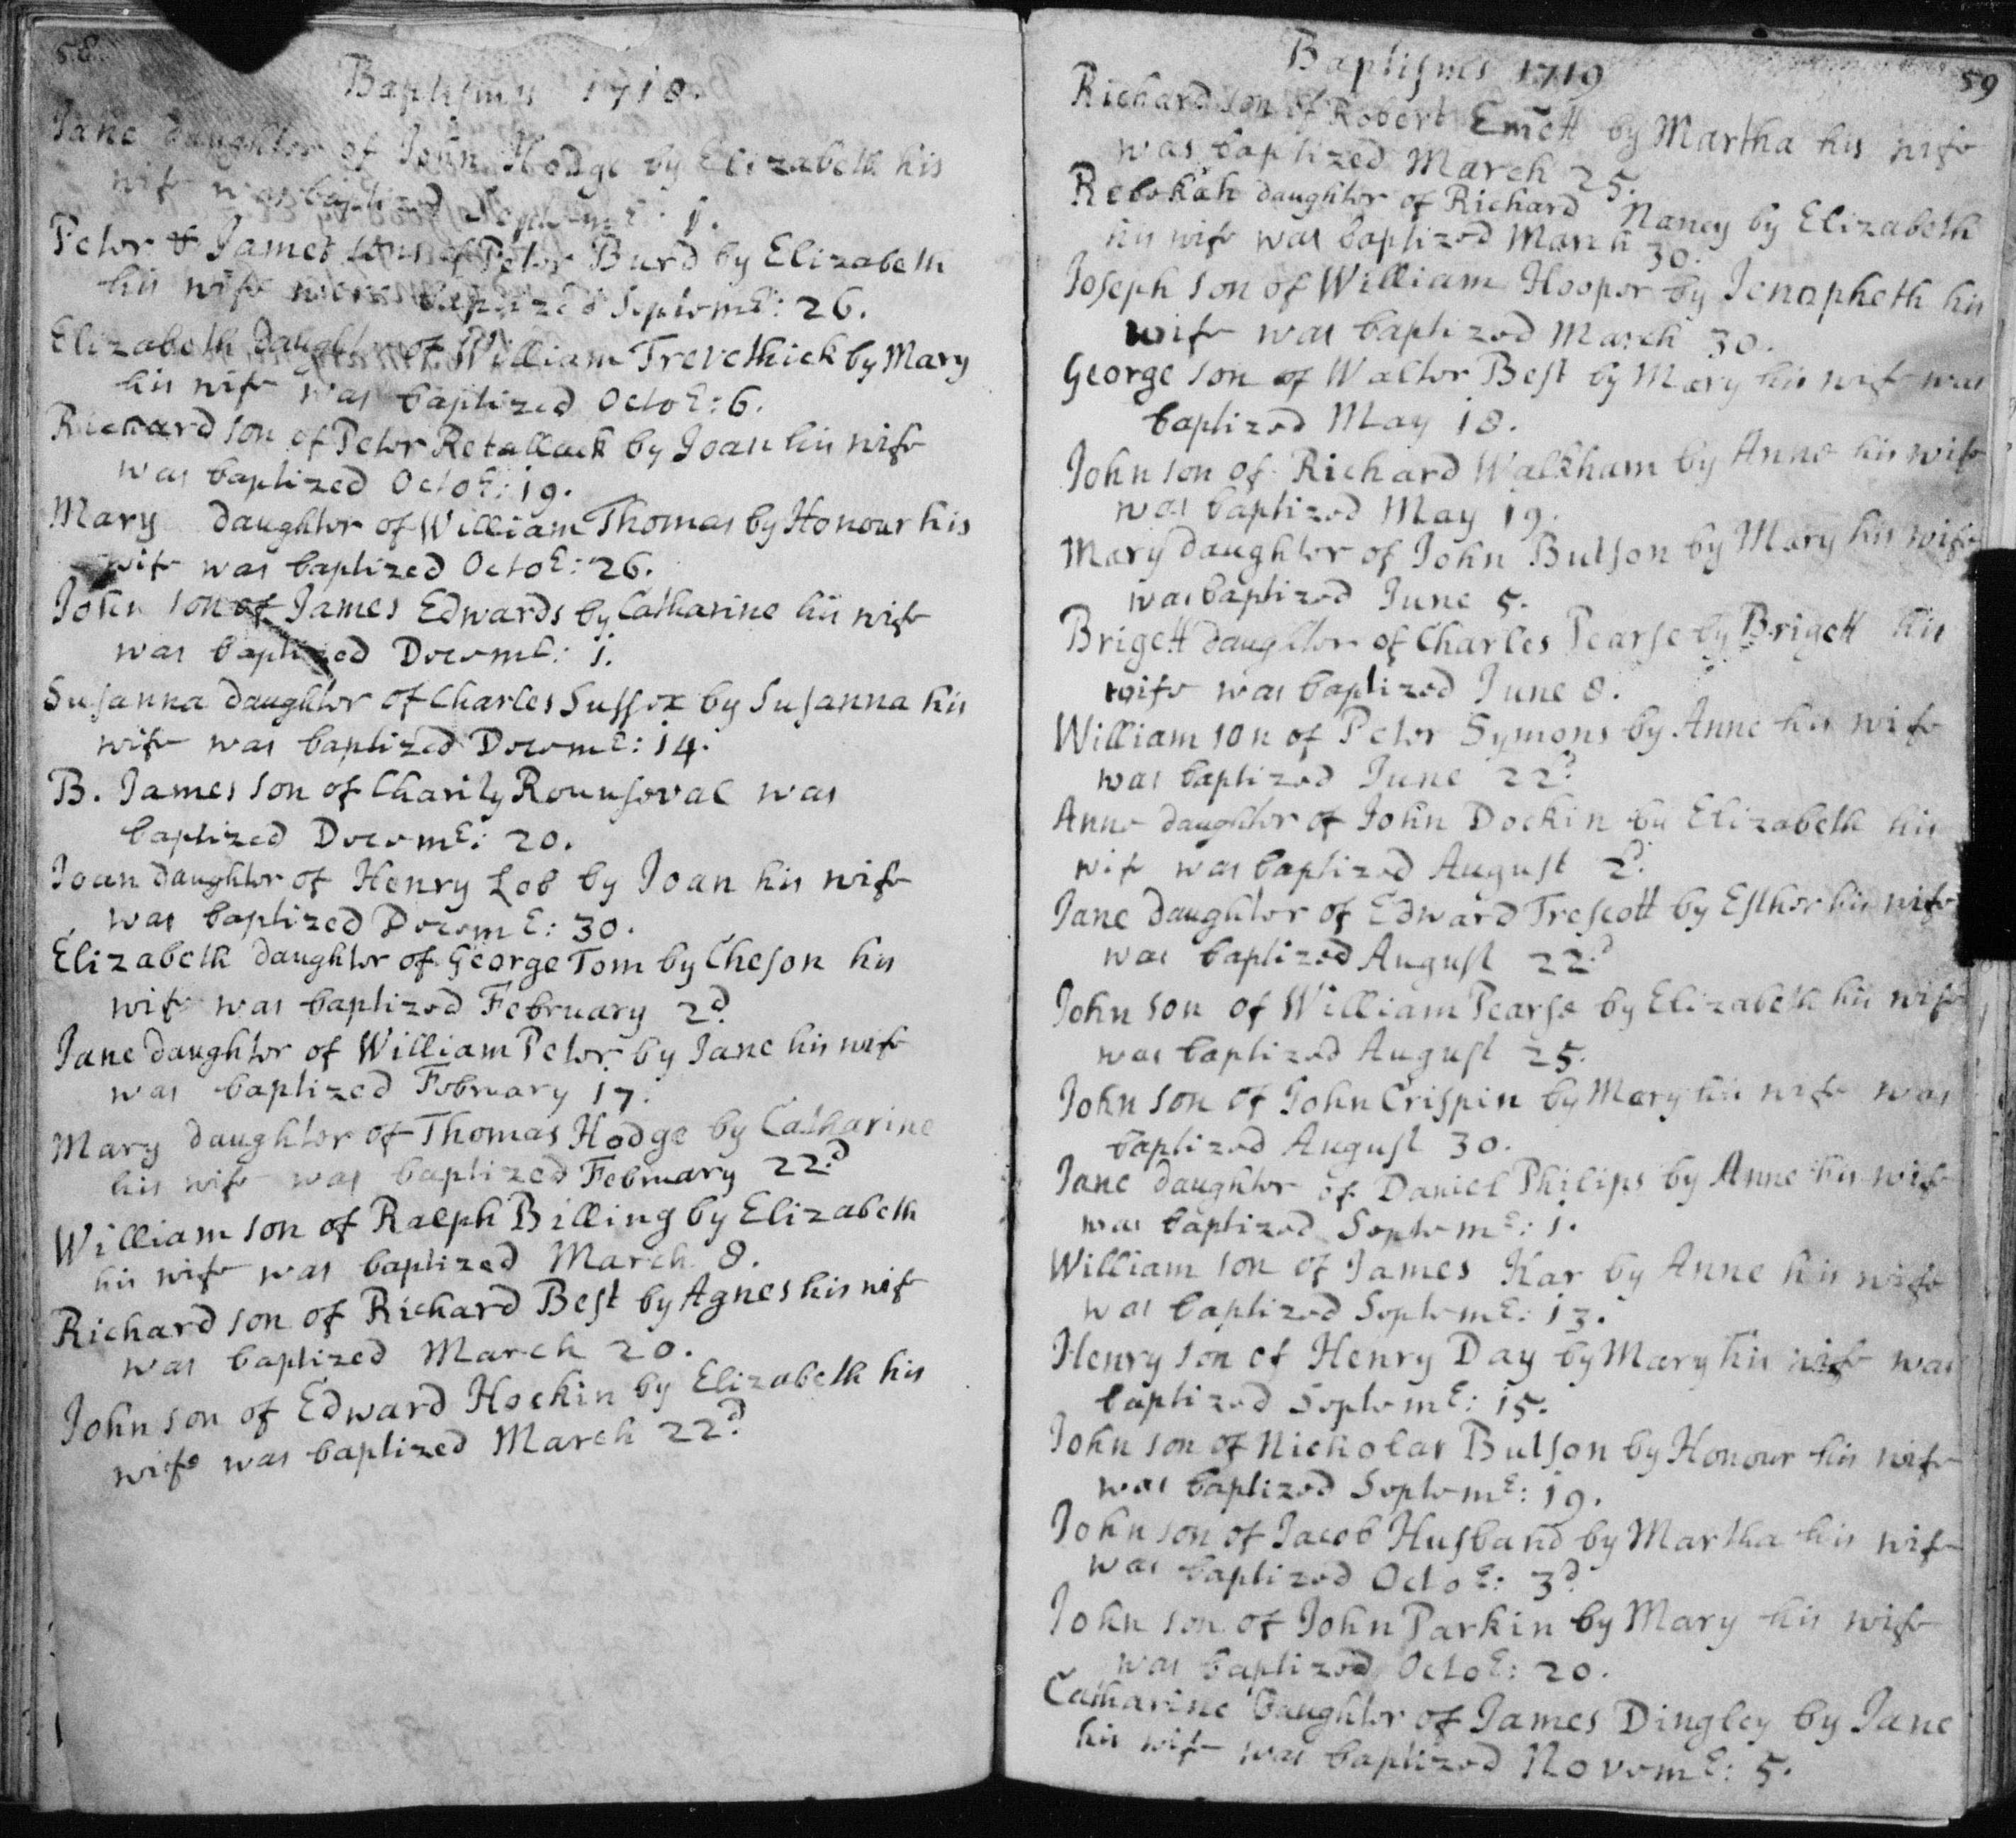 58
Baptisms 1718.
Jane daughter of John Hodge by Elizabeth his
wife was baptized Septemb: 1.
Peter & James sons of Peter Burd by Elizabeth
his wife were baptized Septemb: 26.
Elizabeth daughter of William Trevethick by Mary
his wife was baptized Octob: 6.
Richard son of Peter Retallack by Joan his wife
was baptized Octob: 19.
Mary daughter of William Thomas by Honour his
wife was baptized Octob: 26.
John son of James Edwards by Catharine his wife
was baptized Decemb: 1.
Susanna daughter of Charles Sussex by Susanna his
wife was baptized Decemb: 14.
B. James son of Charity Rounseval was
baptized Decemb: 20.
Joan daughter of Henry Lob by Joan his wife
was baptized Decemb: 30.
Elizabeth daughter of George Tom by Cheson his
wife was baptized February 2d.
Jane daughter of William Peter by Jane his wife
was baptized February 17.
Mary daughter of Thomas Hodge by Catharine
his wife was baptized February 22d.
William son of Ralph Billing by Elizabeth
his wife was baptized March 8.
Richard son of Richard Best by Agnes his wife
was baptized March 20.
John son of Edward Hockin by Elizabeth his
wife was baptized March 22d.
59
Baptisms 1719
Richard son of Robert Em̄ett by Martha his wife
was baptized March 25.
Rebekah daughter of Richard Nancy by Elizabeth
his wife was baptized March 30.
Joseph son of William Hooper by Jenapheth his
wife was baptized March 30.
George son of Walter Best by Mary his wife was
baptized May 18.
John son of Richard Walkham by Anne his wife
was baptized May 19.
Mary daughter of John Bulson by Mary his wife
was baptized June 5.
Brigett daughter of Charles Pearse by Brigett his
wife was baptized June 8.
William son of Peter Symons by Anne his wife
was baptized June 22d.
Anne daughter of John Dockin by Elizabeth his
wife was baptized August 2d.
Jane daughter of Edward Trescott by Esther his wife
was baptized August 22d.
John son of William Pearse by Elizabeth his wife
was baptized August 25.
John son of John Crispin by Mary his wife was
baptized August 30.
Jane daughter of Daniel Philips by Anne his wife
was baptized Septemb: 1.
William son of James Kar by Anne his wife
was baptized Septemb: 13.
Henry son of Henry Day by Mary his wife was
baptized Septemb: 15.
John son of Nicholas Bulson by Honour his wife
was baptized Septemb: 19.
John son of Jacob Husband by Martha his wife
was baptized Octob: 3d.
John son of John Parkin by Mary his wife
was baptized Octob: 20.
Catharine daughter of James Dingley by Jane
his wife was baptized Novemb: 5.